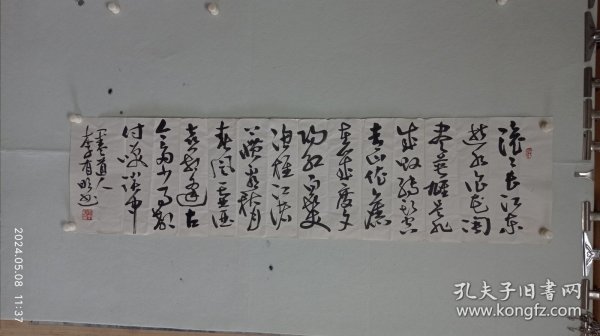 滚滚长江东
逝水浪花淘
尽英雄是非
成败转头空
青山依旧
在几度夕
阳红白发
渔樵江渚
上惯看秋月
春风一壶酒
喜相逢古
今多少事都
付笑谈中
道人
李有明书
2024.05.08 11:37
孔夫子旧书网
kongfz.com